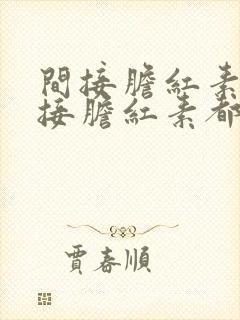 間接膽紅素
接膽紅素都
賈春順